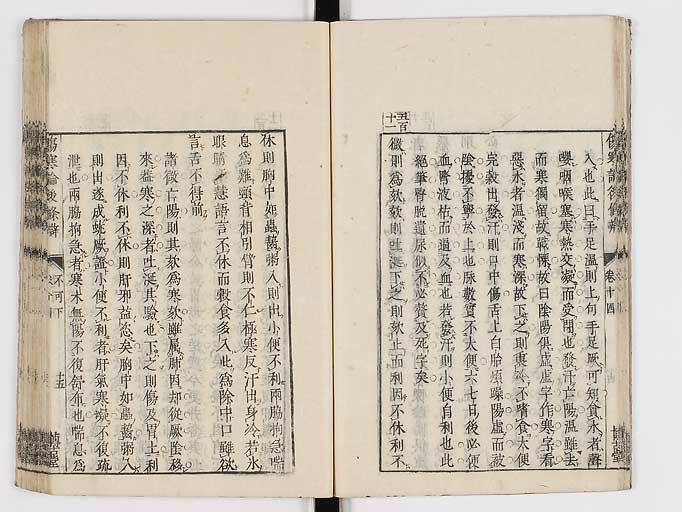 傷寒論後條辨 卷十四
入也此曰手足溫則上句手足厥可知食水者
嬰咽喉塞寒熱交凝而受閉也發汗亡陽溫雖去
而寒獨留故戰慄故曰陰陽俱虛虛字作寒字看
惡水者溫淺而寒深故下之則裏冷不嗜食大便
完穀出發汗則口中傷舌上白胎煩躁陽虛而被
陰擾不寧於上也脉數實不大便六七日後必便
血腎液枯而道及血也若發汗則小便自利也此
五百十一
微則為欬欬則吐涎下之則欬止而利因不休利不
休則胸中如蟲齧粥入則出小便不利兩脇拘急喘
息為難頸背相引臂則不仁極寒反汗出身冷若氷
眼睛不慧語言不休而穀氣多入此為除中口雖欲
言舌不得前
諸微亡陽則其欬為寒欬雖屬肺因却從厥陰移
來雖寒之深者吐涎其驗也下之則傷及胃上利
因不休利不休則肝邪益忿矣胸中如蟲齧粥入
則出遂成蚘厥證小便不利者肝氣寒
泄也兩脇拘急者寒木無陽不復舒布也喘息為
傷寒論後條辨 不可下